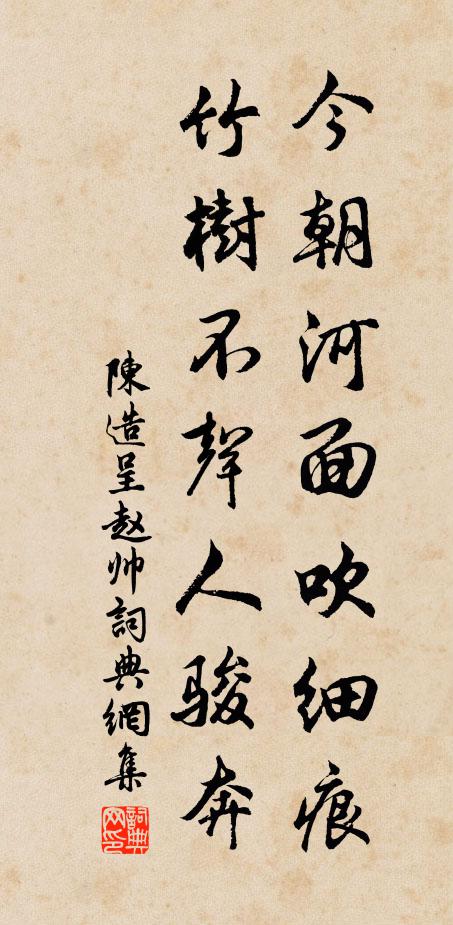 今朝河面吹细痕
竹樹不聲人骏奔
陳造呈赵帅詞典網集
詞典網印